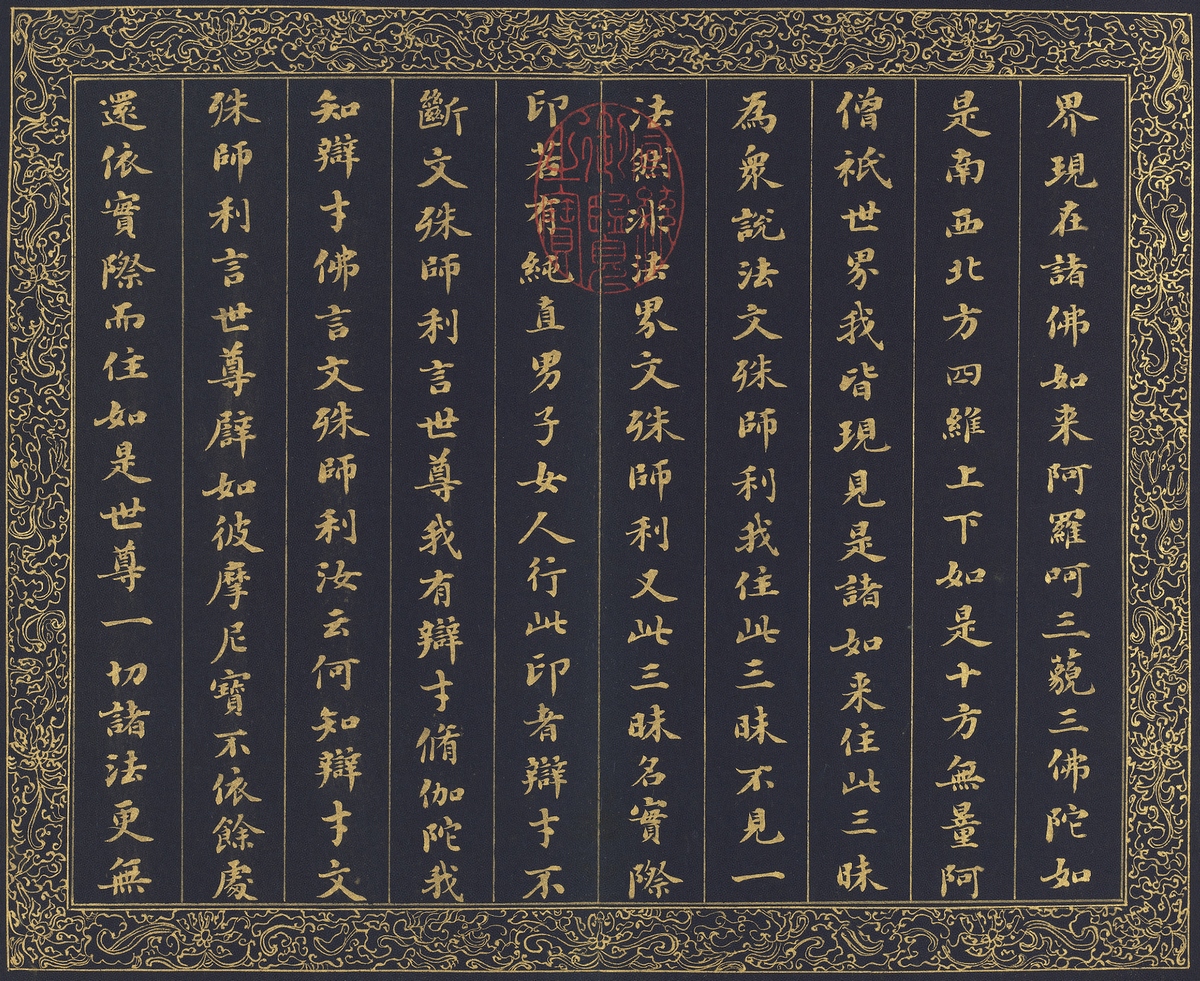 界現在諸佛如来阿羅呵三藐三佛陀如
是南西北方四維上下如是十方無量阿
僧祇世界我皆現見是諸如来住此三昧
為衆說法文殊師利我住此三昧不見一
法然非法界文殊師利又此三昧名實際
印若有純直男子女人行此印者辯才不
斷文殊師利言世尊我有辯才脩伽陀我
知辯才佛言文殊師利汝云何知辯才文
殊師利言世尊譬如彼摩尼寶不依餘處
還依實際而住如是世尊一切諸法更無
御覽
之寶